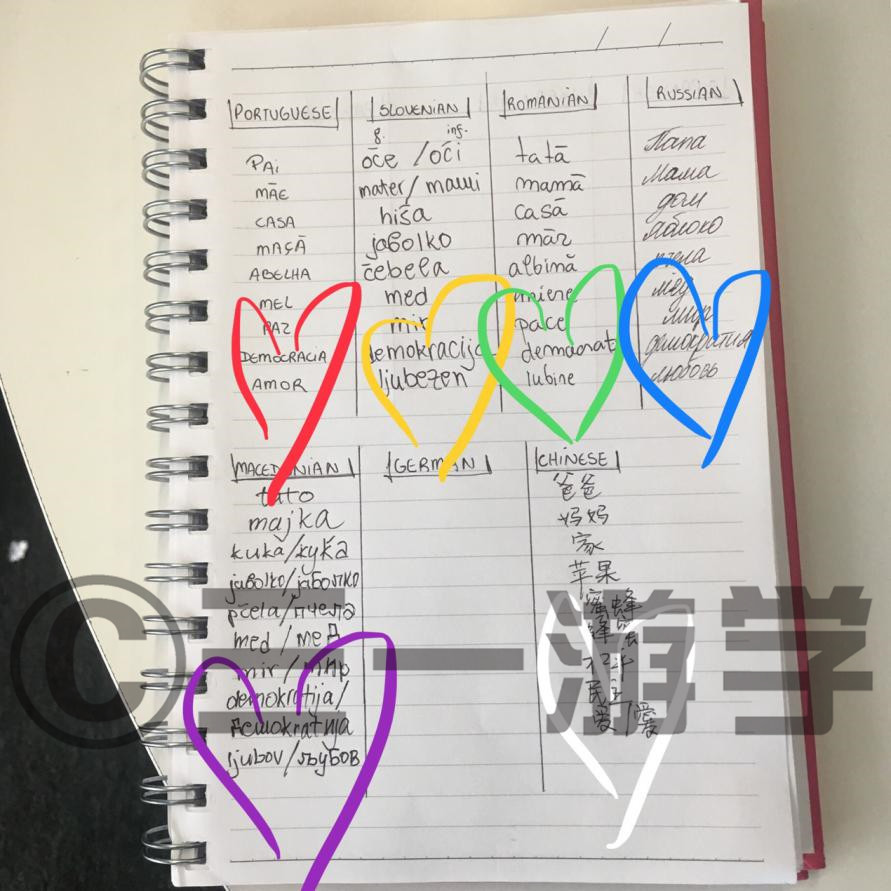 PORTUGUESE
PAI
MÃE
CASA
MAÇÃ
ABELHA
MEL
PAZ
DEMOCRACIA
AMOR
SLOVENIAN
g. inf.
oče / oči
mater / mami
hiša
jabolko
čebela
med
mir
demokracija
ljubezen
ROMANIAN
tată
mamă
casă
măr
albină
miere
pace
iubire
RUSSIAN
Папа
Мама
дом
яблоко
пчела
мёд
мир
демократия
любовь
MACEDONIAN
tato
majka
kuka/куќа
jabolko/јаболко
pčela/пчела
med / мед
mir / мир
demokratija/
ljubov/љубов
GERMAN
CHINESE
爸爸
妈妈
家
苹果
蜜蜂
民主
爱
©三一游学